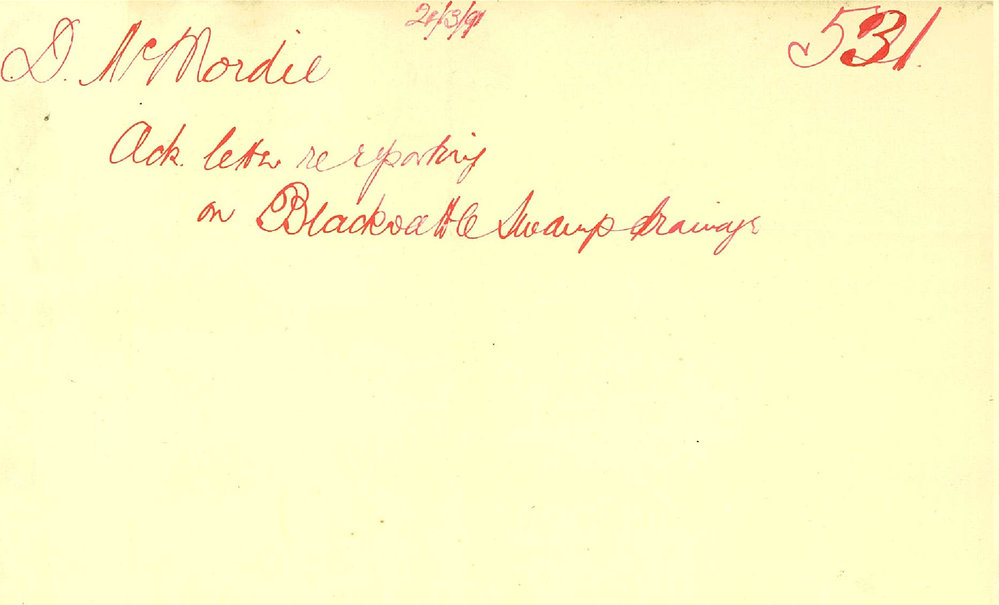 531
D. McMordie
Ack. letter re reporting
on Blackwattle Swamp drainage